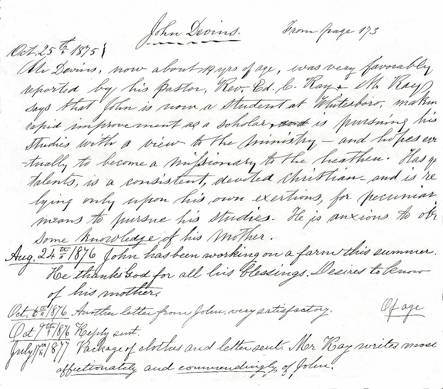 John Devins. From page 173
Oct. 25th 1875}
Mr Devins, now about 18 yrs of age, was very favorably
reported by his Pastor, Rev. Ed. C. Ray. Mr Ray
says that John is now a student at Whitesboro, makin
rapid improvement as a scholar, is pursuing his
studies with a view to the ministry – and hopes eve
tually to become a missionary to the heathen. Has g
talents, is a consistent, devoted Christian – and is re
lying only upon his own exertions, for pecuniar
means to pursue his studies. He is anxious to ob
some knowledge of his mother.
Aug. 24th 1876 John has been working on a farm this summer.
He thanks God for all his blessings. Desires to know
of his mother.
Oct. 6th 1876 Another letter from John, very satisfactory. Of age
Oct 7th 1876 Reply sent.
July 17th 1877 Package of clothes and letter sent. Mr Ray writes most
affectionately and commendingly of John.